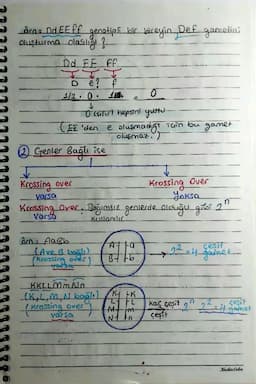 örn: DdEEFf genotipli bir bireyin Def gametini
oluşturma olasılığı?
Dd EE Ff
D e? f
1/2 . 0 . 1/2 = 0
0 (sıfır) hepsini yuttu
(EE'den e oluşmadığı için bu gamet
oluşmaz.)
2 Genler Bağlı ise
Krossing over Krossing Over
varsa Yoksa
Krossing Over : Bağımsız genlerde olduğu gibi 2ⁿ
Varsa kullanılır
örn: AaBb
(A ve B bağlı)
(Krossing over)
varsa
A a
B b
2² = 4 çeşit
gamet
KKLLMmNn
(K, L, M, N bağlı)
(Krossing over)
varsa
K K
L L
M m
N n
kaç çeşit
çeşit
2ⁿ 2² = 4 çeşit
gamet